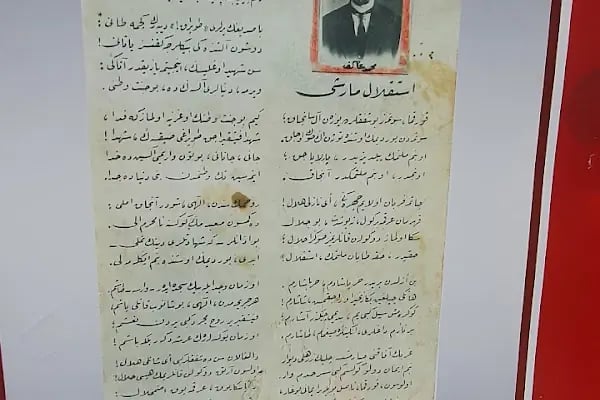 محمد عاكف
استقلال مارشی
قورقما، سونمز بو شفقلرده یوزن آل سانجاق؛
سونمه‌دن یوردیمك اوستنده توتن اك صوك اوجاق.
او بنم ملتمك ییلدیزیدر، پارلایاجق؛
او بنمدر، او بنم ملتمكدر آنجاق.
چاتما، قربان اولایم، چهره‌كی ای نازلی هلال!
قهرمان عرقمه بر كول... نه بو شدت، بو جلال؟
سكا اولماز دوكولن قانلریمز صوكرا حلال؛
حقیدر، حقه طاپان ملتمك، استقلال!
بن ازلدن بریدر حر یاشادم، حر یاشارم؛
هانكی چیلغین بكا زنجیر اوراجقمش؟ شاشارم!
كوكره‌مش سیل كبی‌یم، بندیمی چیكنر، آشارم؛
ییرتارم داغلری، انكینلره صیغمام، طاشارم.
غربك آفاقنی صارمشسه چلیك زرهلی دیوار
بنم ایمان دولو كوكسم كبی سرحدم وار
اولوسون، قورقما! ناصل بویله بر ایمانی بوغار،
باصدیغك یرلری «طوپراق!» دییه‌رك كچمه، طانی!
دوشون آلتنده‌كی بیكلرجه كفنسز یاتانی!
سن شهید اوغلیسك، اینجیتمه، یازیقدر، آتاكی؛
ویرمه، دنیالری آلسه‌ك ده، بو جنت وطنی.
كیم بو جنت وطنك اوغرینه اولماز كه فدا؟
شهدا فیشقیراجق طوپراغی صیقسه‌ك، شهدا!
جانی، جانانی، بوتون واریمی آلسین ده خدا
ایتمه‌سین تك وطنمدن بنی دنیاده جدا.
روحمك سندن، الهی، شودر آنجاق املی:
دكمه‌سین معبدمك كوكسنه نامحرم الی
بو اذانلر - كه شهادتلری دینك تملی -
ابدی، یوردیمك اوستنده بنم ایكله‌ملی.
او زمان وجد ایله بیك سجده ایدر - وارسه - طاشم
هر جریحه‌مدن، الهی، بوشانوب قانلی یاشم،
فیشقیرر روح مجرد كبی یردن نعشم!
او زمان یوكسله‌رك عرشه دكر بلكه باشم!
دالغالان سن ده شفقلر كبی ای شانلی هلال!
اولسون آرتق دوكولن قانلریمك هپسی حلال!
ابدیا سكا یوق، عرقمه یوق، اضمحلال!